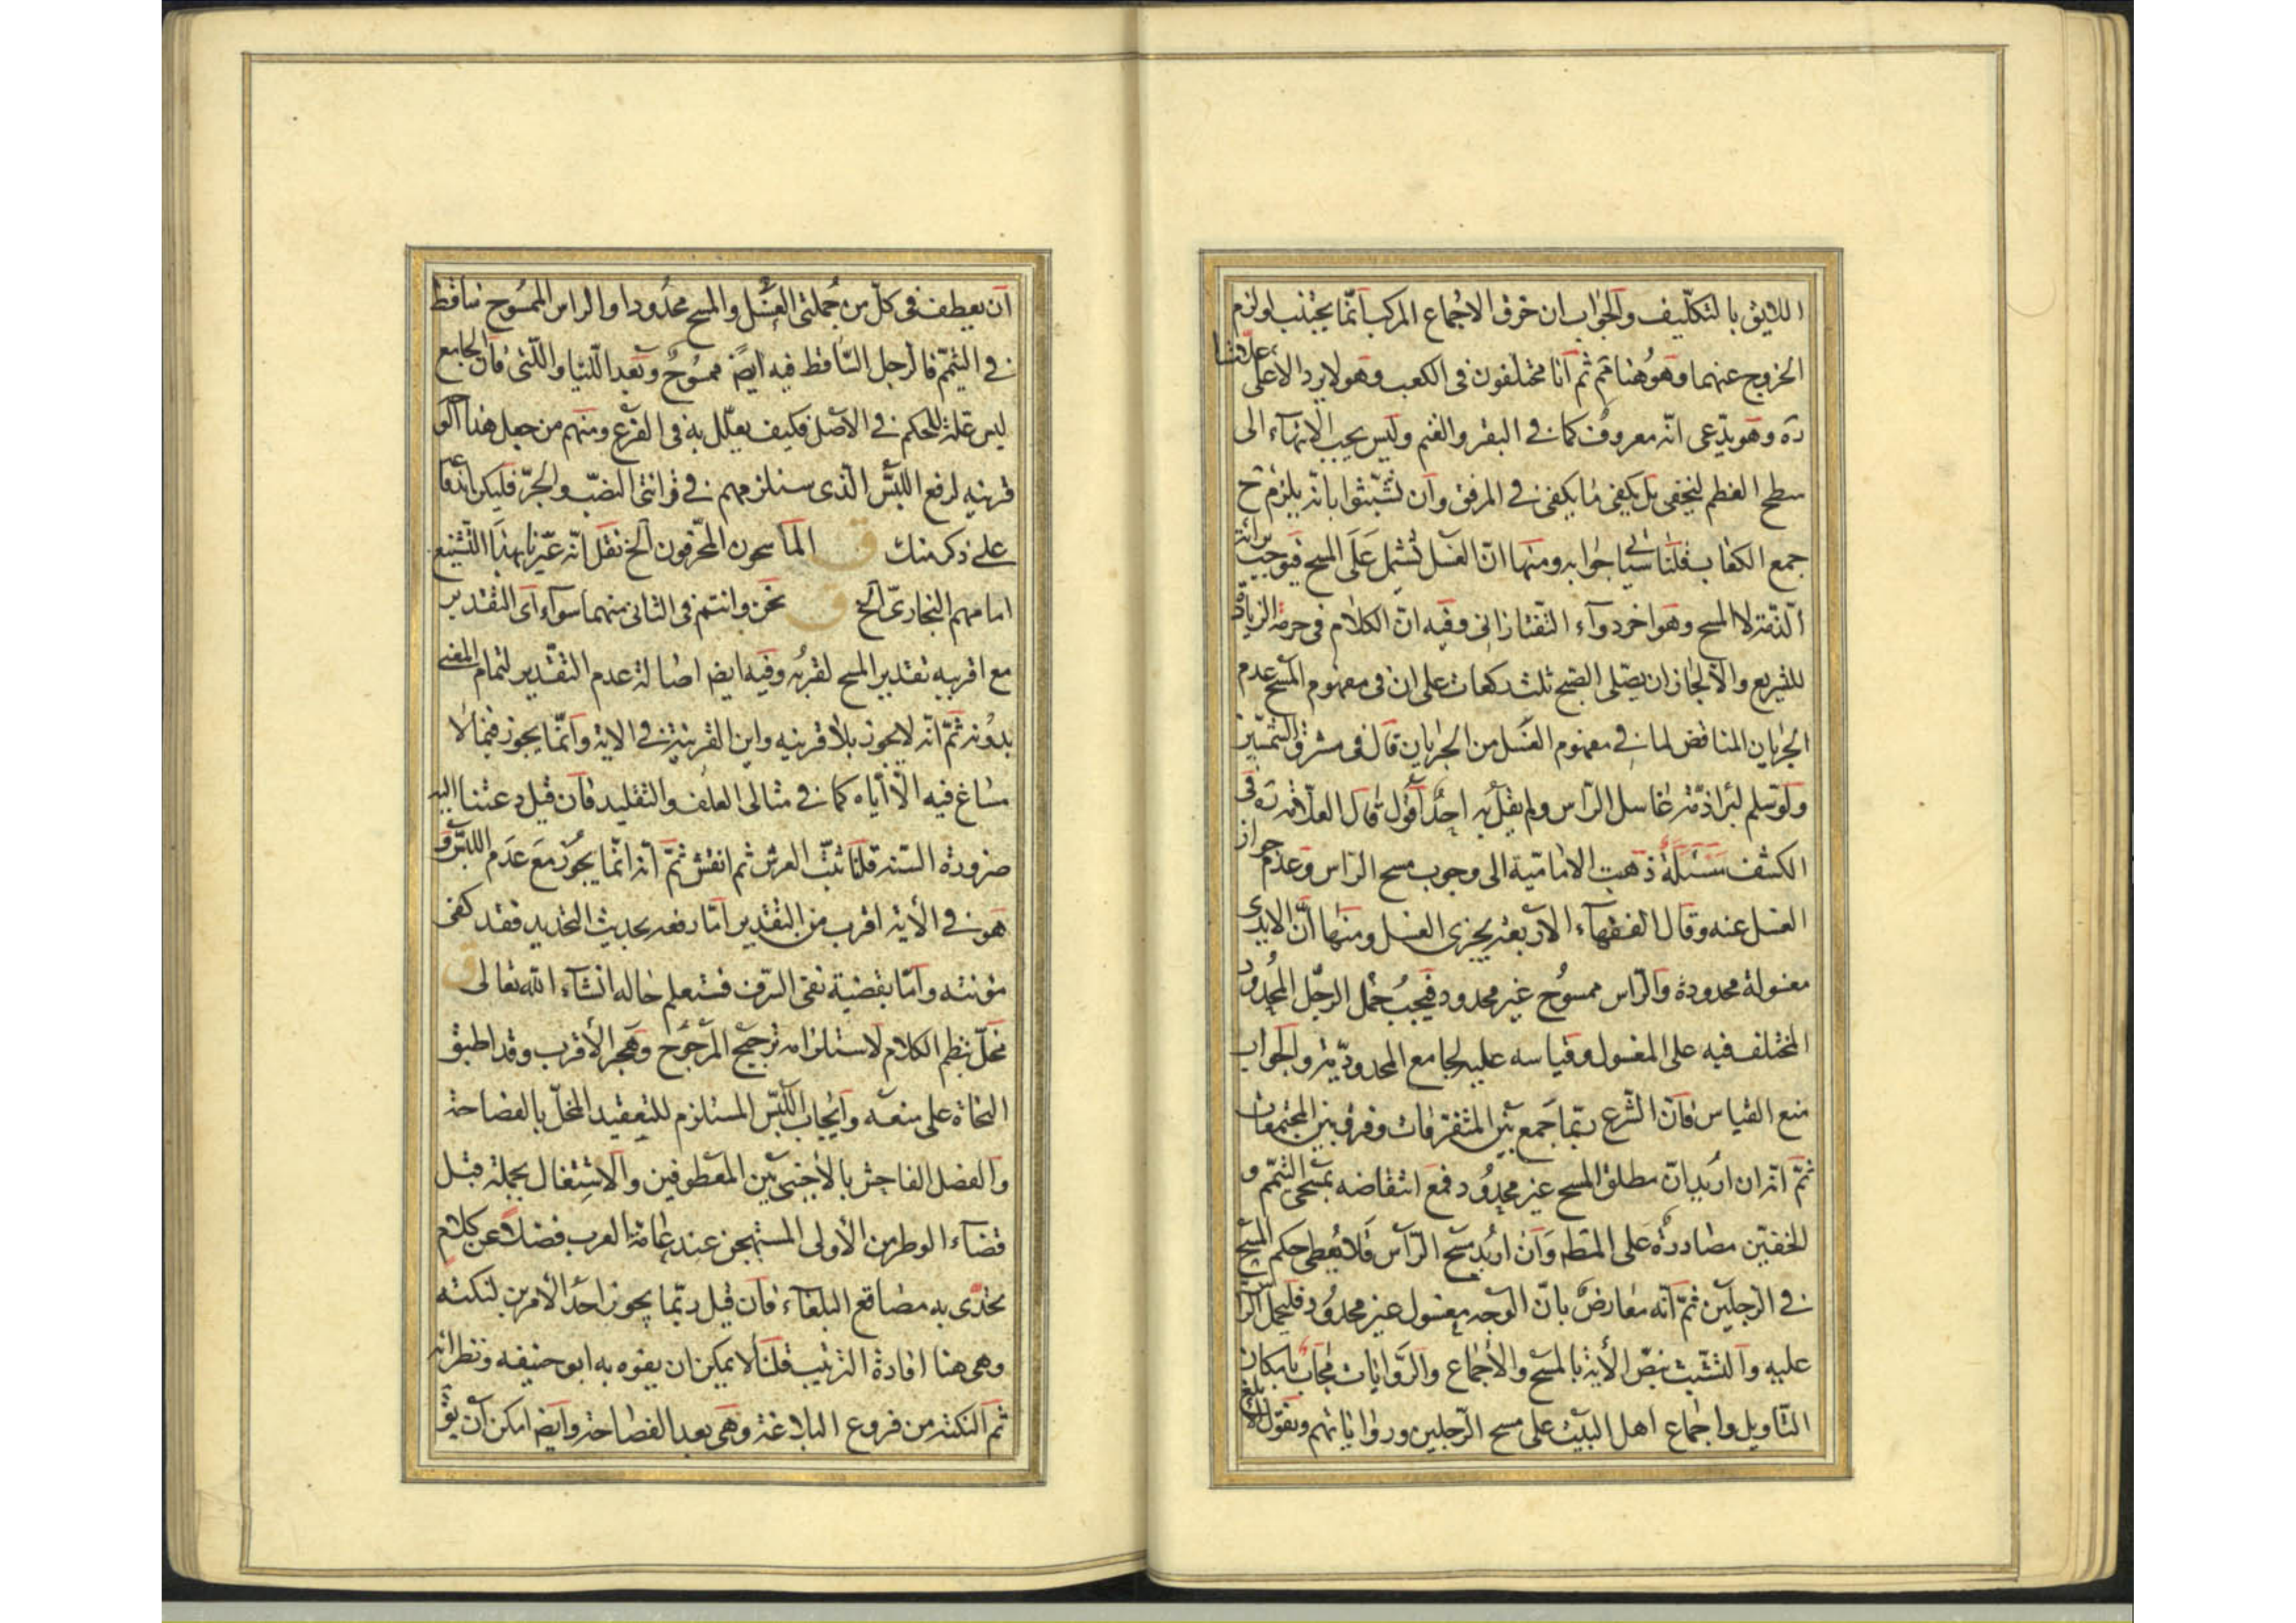 اللايق بالتكليف والجواب ان خرق الاجماع المركب انما يجتنب لو لزم
الخروج عنهما وهو هنا ثم ثم انا مختلفون فى الكعب وهو لا يرد الا على علامتنا
ره وهو يدعى انه معروف كما فى البقر والغنم وليس يجب الانهاء الى
سطح العظم ليخفى بل يكفى ما يكفى فى المرفق وان تشبثوا بانه يلزم ح
جمع الكعاب قلنا سياتى جوابه ومنها ان الغسل تشمل على المسح فيوجب براءة
الذمة لا المسح وهو اخر دواء التفتازانى وفيه ان الكلام فى حرمة الزيادة
للتشريع والا لجاز ان يصلى الصبح ثلث ركعات على ان فى مفهوم المسح عدم
الجريان المناقض لما فى مفهوم الغسل من الجريان قال فى مشرق الشمسين
ولو سلم لبرا ذمة غاسل الراس ولم يقل به احد اقول قال العلامة ره فى
الكشف مسئلة ذهبت الامامية الى وجوب مسح الراس وعدم جواز
الغسل عنه وقال الفقهاء الاربعة يجزى الغسل ومنها ان الايدى
مغسولة محدودة والراس ممسوح غير محدود فيجب حمل الرجل المحدود
المختلف فيه على المغسول وقياسه عليه لجامع المحدودية والجواب
منع القياس فان الشرع ربما جمع بين المتفرقات وفرق بين المجتمعات
ثم انه ان اريد ان مطلق المسح غير محدود فمع انتقاضه بمسحى التيمم و
الخفين مصادرة على المط وان اريد مسح الراس فلا يعطى حكم المسح
فى الرجلين ثم انه معارض بان الوجه مغسول غير محدود فليحمل الراس
عليه والتشبث بنص الاية بالمسح والاجماع والروايات مجاب بامكان
التاويل واجماع اهل البيت على مسح الرجلين ورواياتهم ونقول الابلغ
ان يعطف فى كل من جملتى الغسل والمسح محدودا والراس الممسوح ساقط
فى التيمم فالرجل الساقط فيه ايض ممسوح وبعد اللتيا واللتى فان الجامع
ليس علة للحكم فى الاصل فكيف يعلل به فى الفرع ومنهم من جعل هذا
قرينة لرفع اللبس الذى سنلزمهم فى قرائتى النصب والجر فليكن
على ذكر منك ق الماسحون المحرفون الخ نقل انه عيرنا بهذا التشنيع
امامهم البخارى الخ ق نحن وانتم فى الثانى منهما سواء اى التقدير
مع اقربيه تقدير المسح لقربه وفيه ايض اصالة عدم التقدير لتمام المعنى
بدونه ثم انه لا يجوز بلا قرينه واين القرينة فى الاية وانما يجوز فيما لا
مساغ فيه الا اياه كما فى مثالى العلف والتقليد فان قيل دعتنا اليه
ضرورة السنة قلنا ثبت العرش ثم انقش ثم انه انما يجوز مع عدم اللبس و
هو فى الاية اقرب من التقدير اما رفعه بحديث التحديد فقد كفى
مؤنته واما بقضية نفى السرف فستعلم حاله انشاء الله تعالى ق
مخل بنظم الكلام لاستلزامه ترجيح المرجوح وهجر الاقرب وقد اطبق
النحاة على منعه وايجاب اللبس المستلزم للتعقيد المخل بالفصاحة
والفصل الفاحش بالاجنبى بين المعطوفين والاشتغال بجملة قبل
قضاء الوطر من الاولى المستهجن عند عامة العرب فضلا عن كلام
تحدى به مصاقع البلغاء فان قيل ربما يجوز احد الامرين لنكتة
وهى هنا افادة الترتيب قلنا لا يمكن ان يفوه به ابو حنيفه ونظرائه
ثم النكتة من فروع البلاغة وهى بعد الفصاحة وايض امكن ان يق